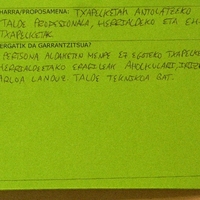 HARRA/PROPOSAMENA: TXAPELKETAK ANTOLATZEKO
TALDE PROFESIONALA, HERRIALDEKO ETA EH
TXAPELKETAK.
ERGATIK DA GARRANTZITSUA?
PERTSONA ALDAKETEN MENPE EZ EGOTEKO TXAPELKE
HERRIALDEETAKO ERAGILEAK
ARLOA LANDUZ TALDE TEKNIKOA BAT.